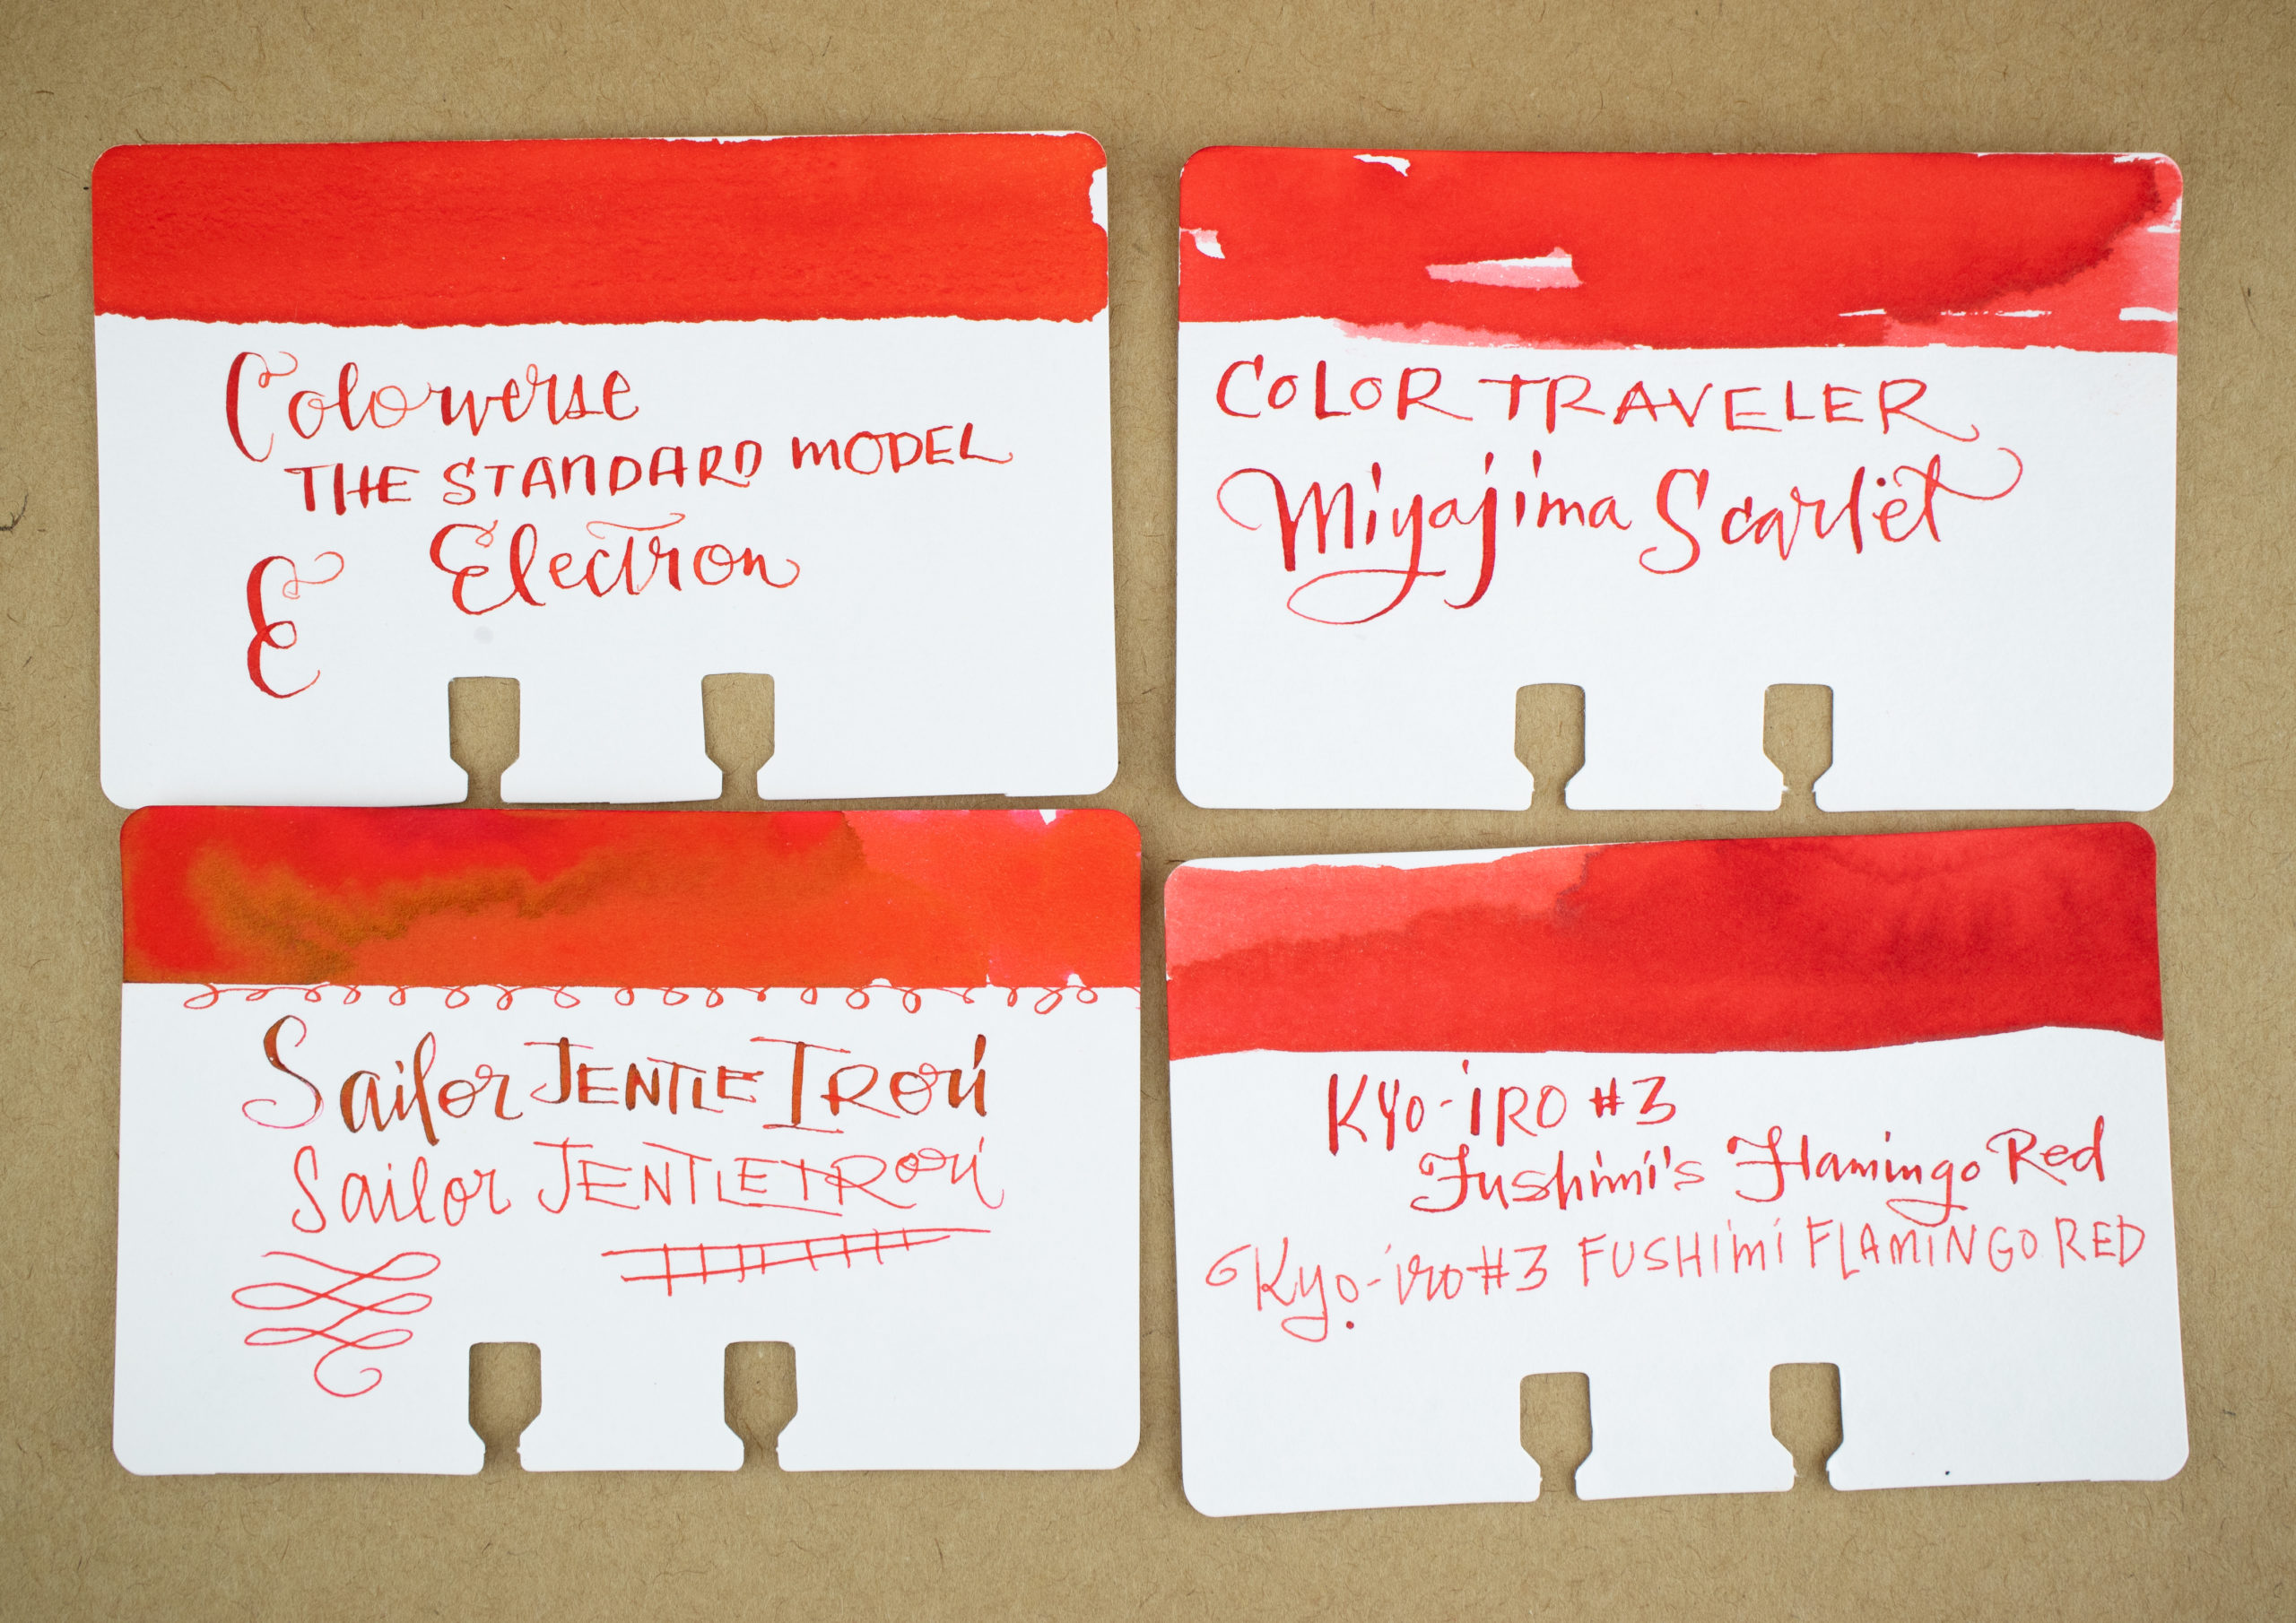 Colorverse
THE STANDARD MODEL
Electron
E
COLOR TRAVELER
Miyajima Scarlet
Sailor JENTLE IRORI
Sailor JENTLE IRORI
KYO-iRO #3
Fushimi's Flamingo Red
Kyo-iro #3 FUSHiMi FLAMiNGO RED